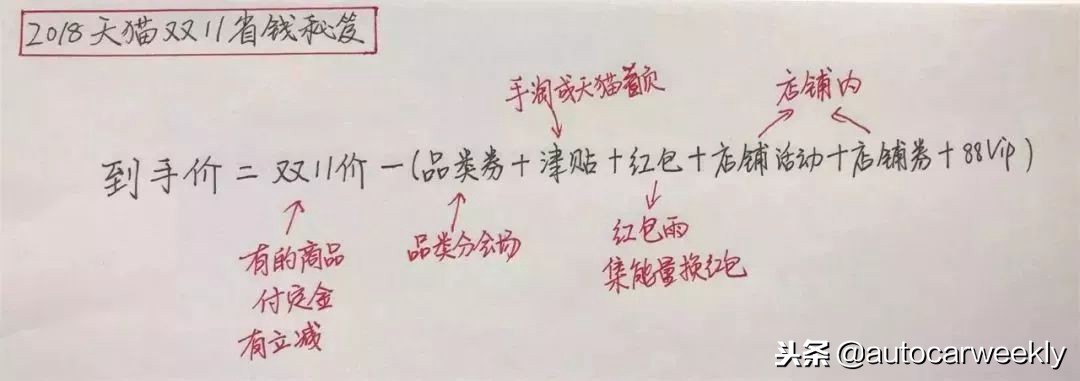 2018天猫双11省钱秘笈
手淘或天猫首页
店铺内
到手价=双11价-(品类券+津贴+红包+店铺活动+店铺券+88Vip)
有的商品
付定金
有立减
品类分会场
红包雨
集能量换红包
头条 @autocarweekly